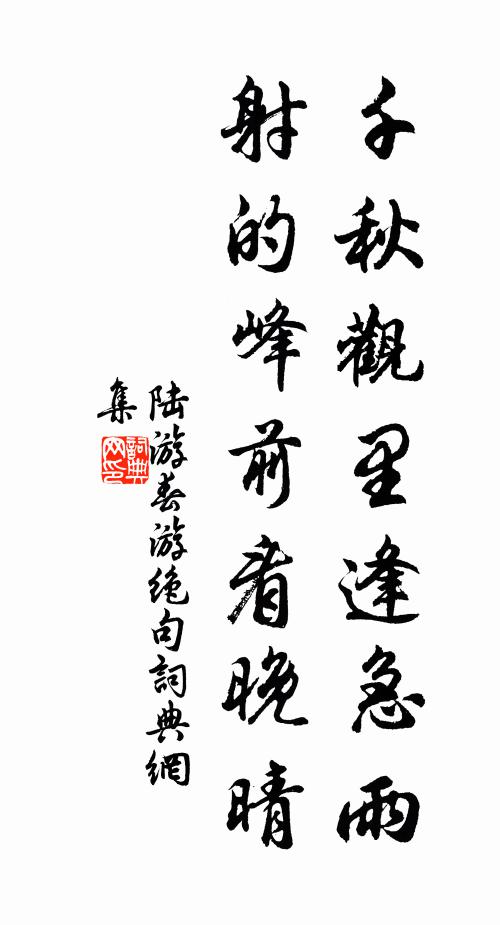 千秋觀里逢急雨
射的峰前看晚晴
陆游春游绝句詞典網
集
詞典
网印